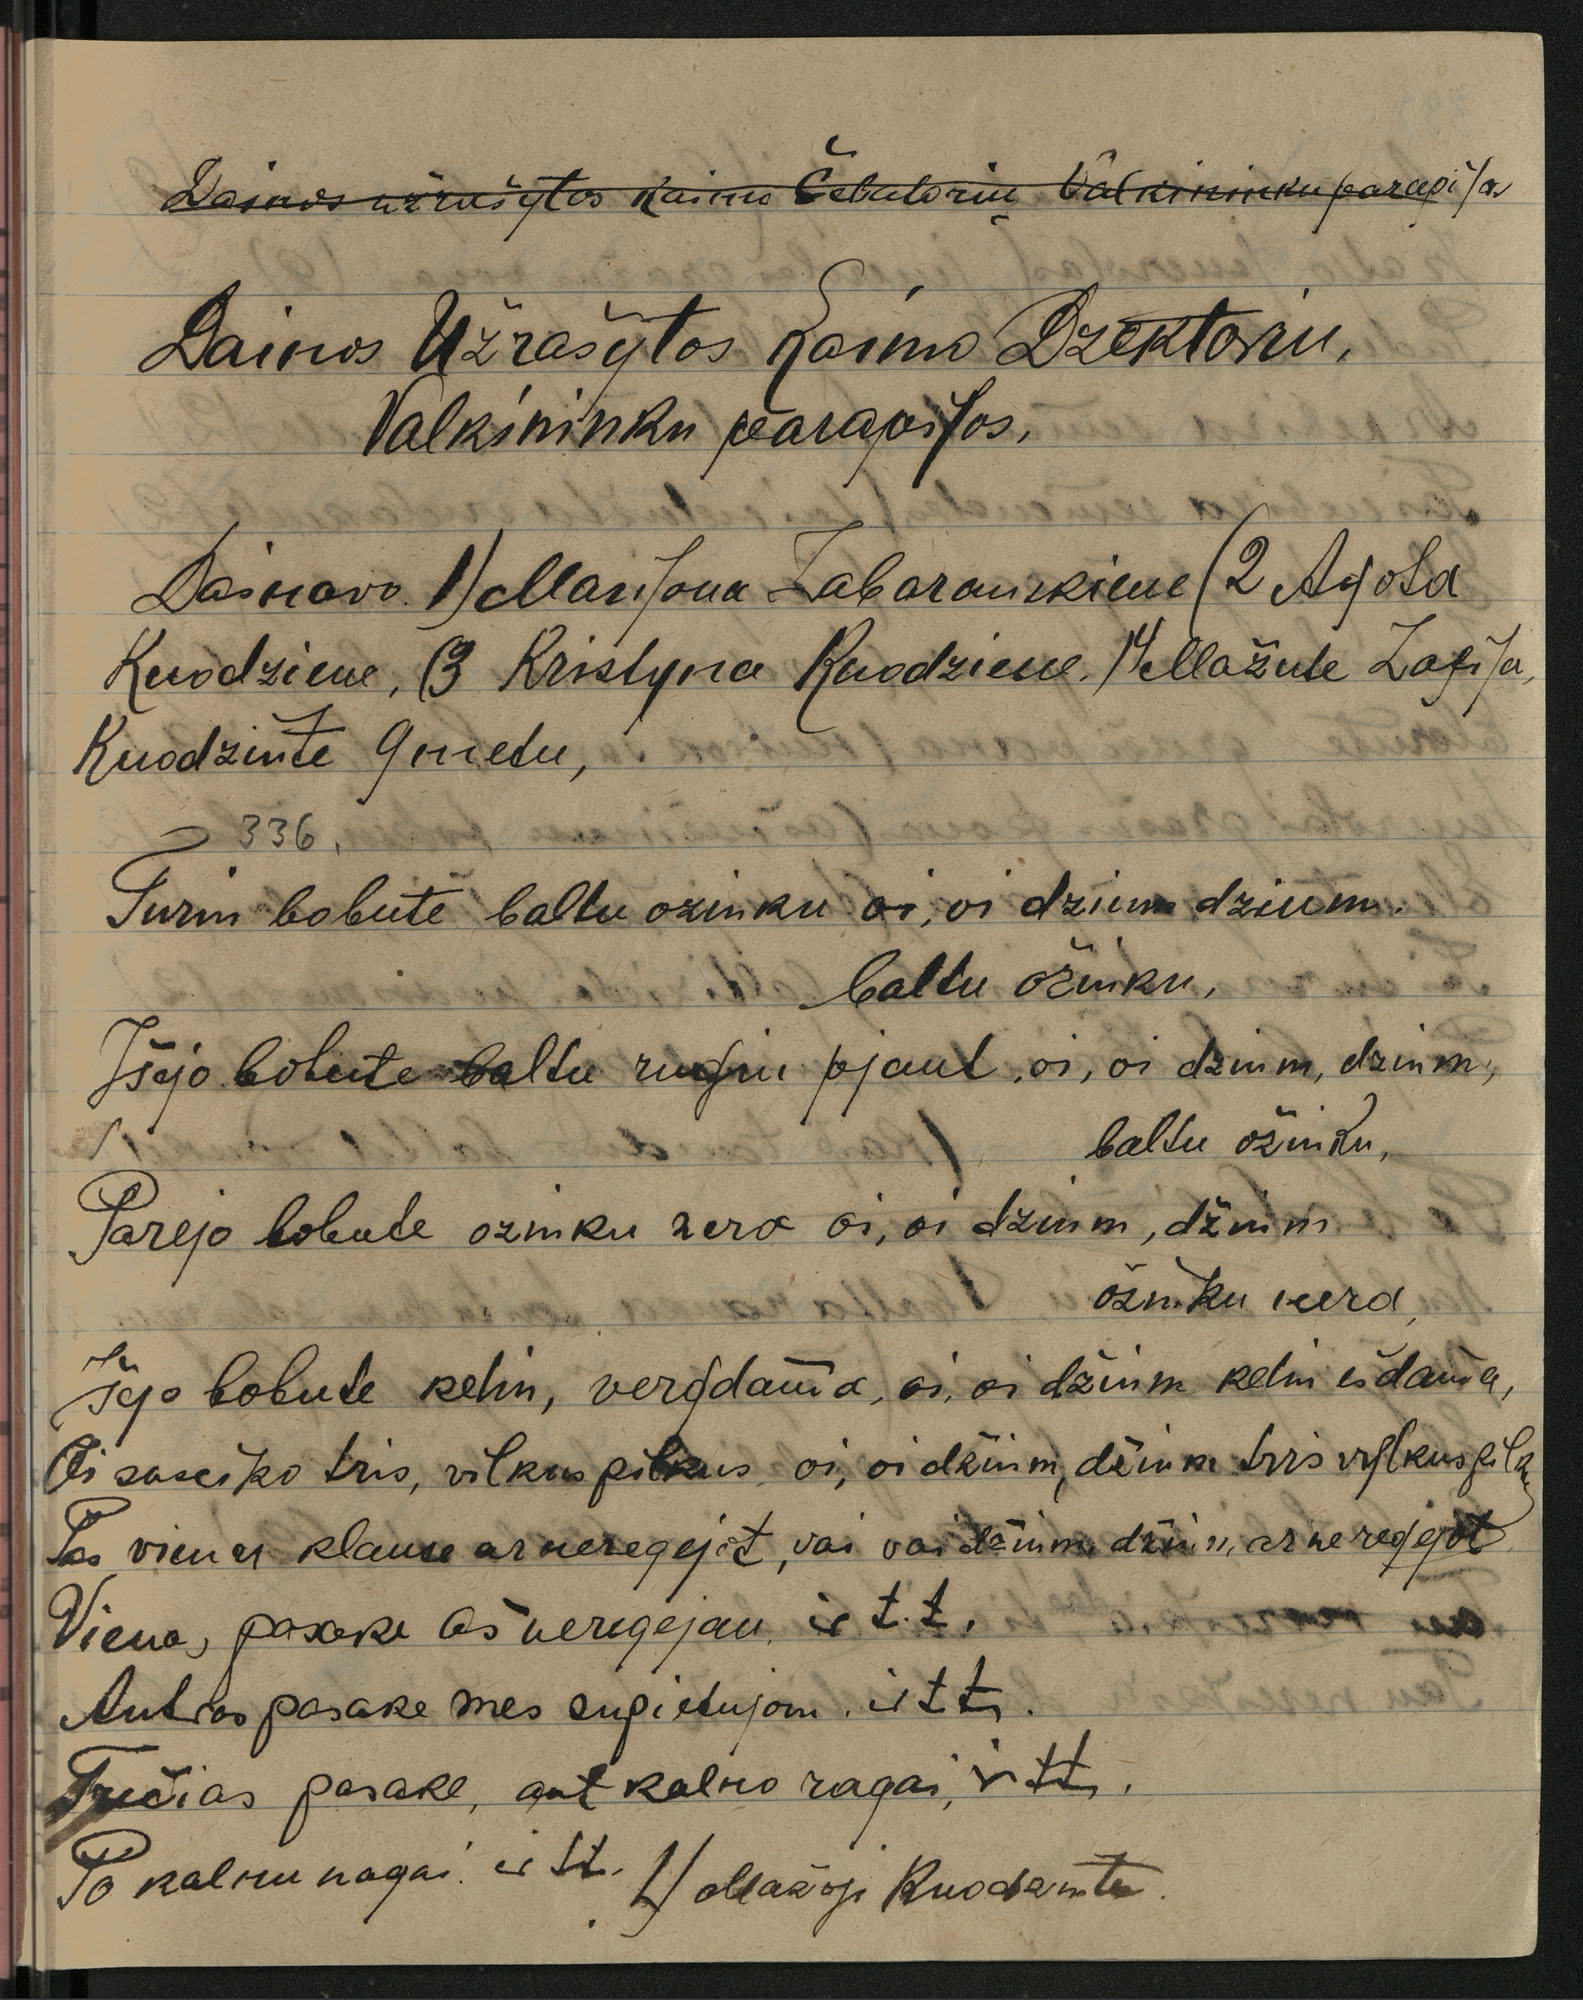 Dainos užrašytos Kaimo Čebatoriu Valkininku parapijos
Dainos Užrašytos Kaimo Dzektoriu,
Valkininku parapijos,
Dainavo 1) Marijona Zabarauskiene (2 Agota
Kuodziene, (3 Kristyna Kuodziene. )4 Mažute Zofija,
Kuodziute 9 metu,
336,
Turin bobutė baltu ozinku oi, oi dzium dzium.
baltu ožinku,
Išejo bobute baltu rugiu pjaut, oi, oi dzium, dzium,
baltu ožinku,
Parejo bobute ozinku nera oi, oi dzium, džium
ožinku nera,
Išejo bobute keliu, verjdama, oi, oi džium keliu eidama,
Oi suseiko tris, vilkus pilkus oi, oi džium, džium tris vylkus pilku
Pas viena klause ar neregejot, vai vai džium, džium, ar neregejot
Vienas pasake aš neregejau ir t.t.
Antras pasake mes supietujom. ir tt.
Trečias pasake, ant kalno ragai, ir tt.
Po kalnu nagai. ir tt. 1) Mažoji Kuodziute.